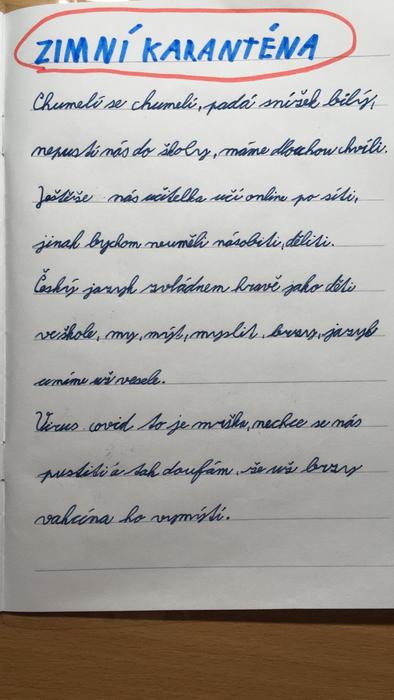 ZIMNÍ KARANTÉNA
Chumelí se chumelí, padá snížek bílý,
nepustí nás do školy, máme dlouhou chvíli.
Ještěže nás učitelka učí online po síti,
jinak bychom neuměli násobiti, děliti.
Český jazyk zvládnem hravě jako děti
ve škole, my, mýt, myslit, brzy, jazyk
umíme už vesele.
Virus covid to je mrška, nechce se nás
pustiti a tak doufám, že už brzy
vakcína ho vymýtí.